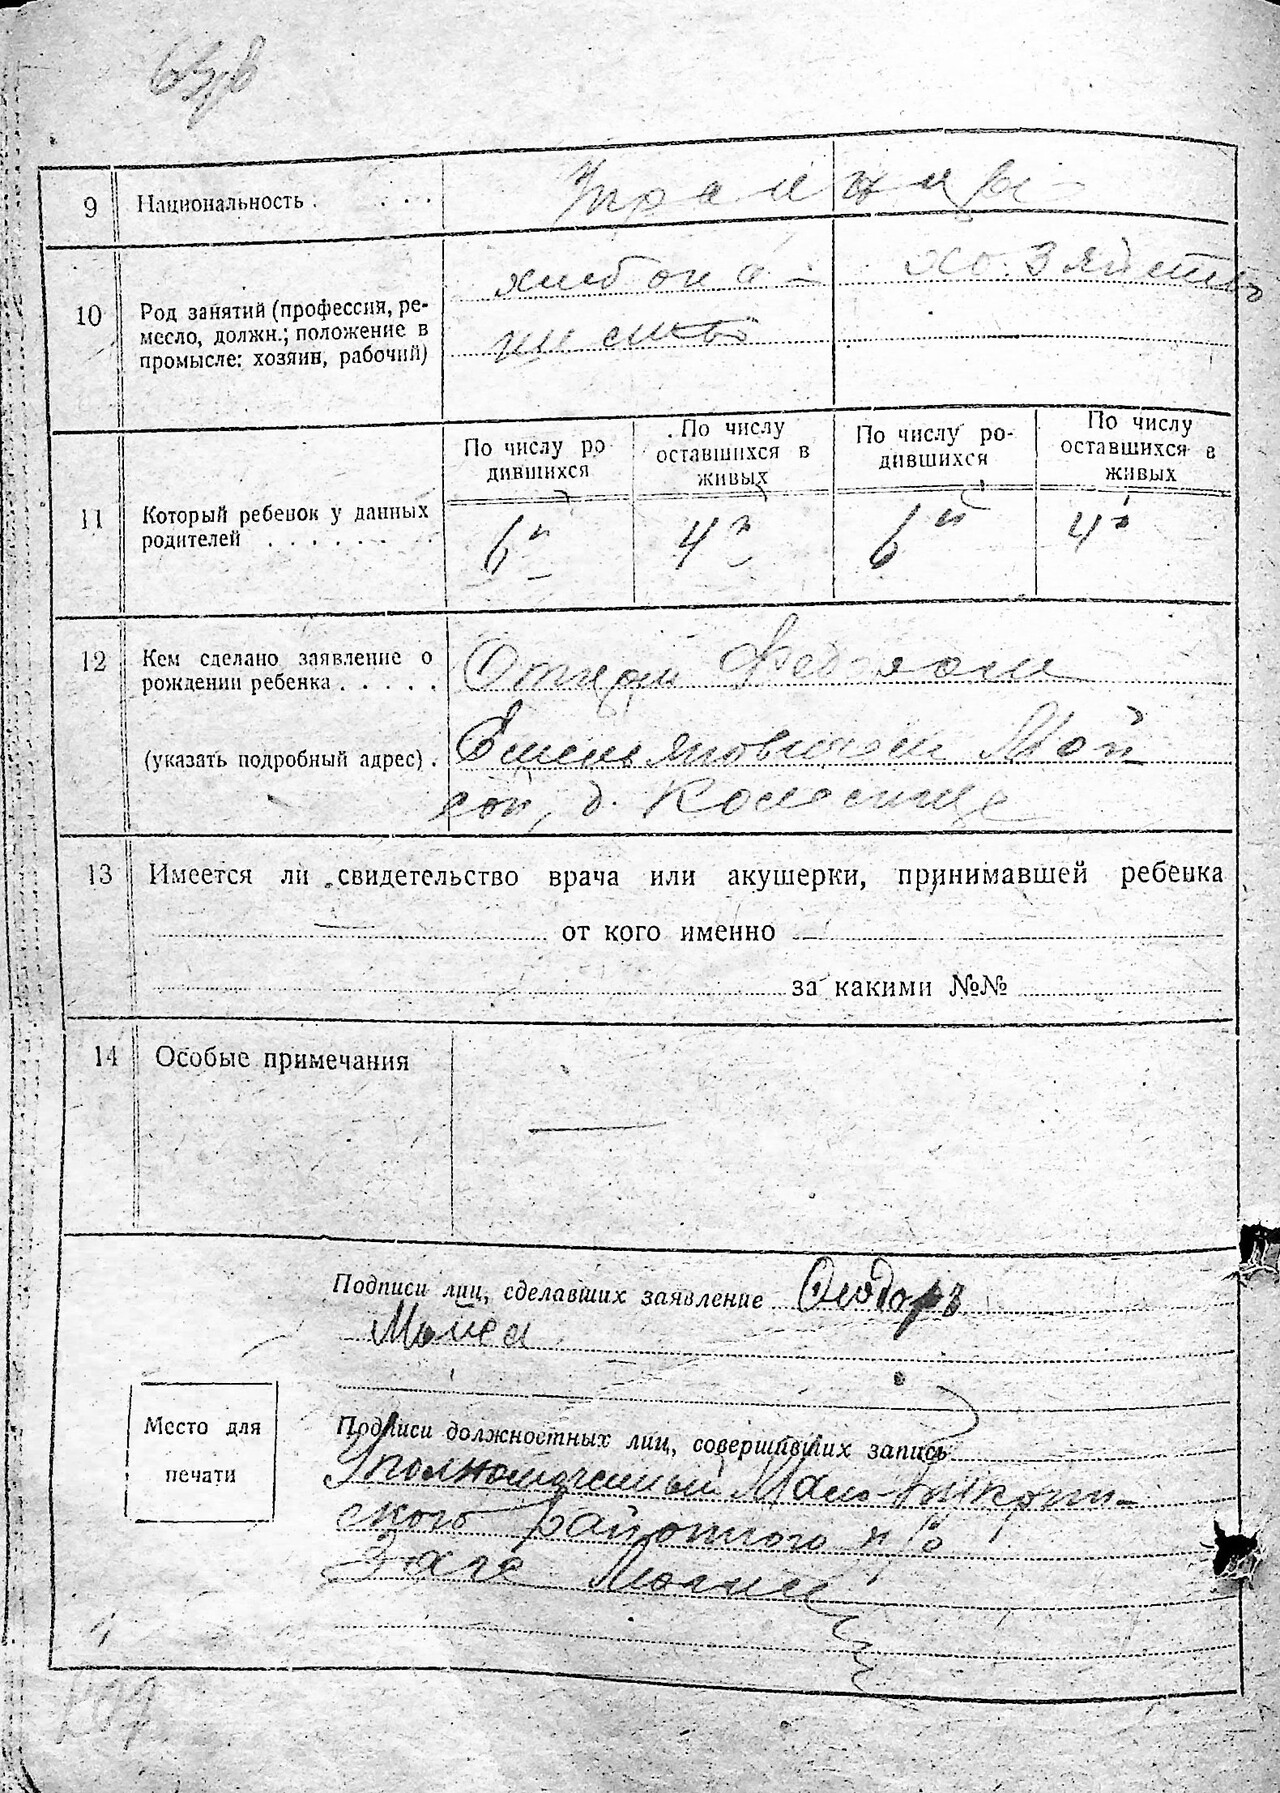 9 Национальность . . . . Украинцы
10 Род занятий (профессия, ре-
месло, должн.; положение в
промысле: хозяин, рабочий)
хозяйство
11 Который ребенок у данных
родителей . . . . . . .
По числу ро-
дившихся
По числу
оставшихся в
живых
По числу ро-
дившихся
По числу
оставшихся в
живых
6й 4й 6й 4й
12 Кем сделано заявление о
рождении ребенка . . . . .
Отцом Федором
(указать подробный адрес) . Емельяновичем Мой
сой, д.
13 Имеется ли свидетельство врача или акушерки, принимавшей ребенка
от кого именно
за какими №№
14 Особые примечания
Подписи лиц, сделавших заявление
Мойса
Место для
печати
Подписи должностных лиц, совершивших запись
Уполномоченный
ского районного п/о
Загс